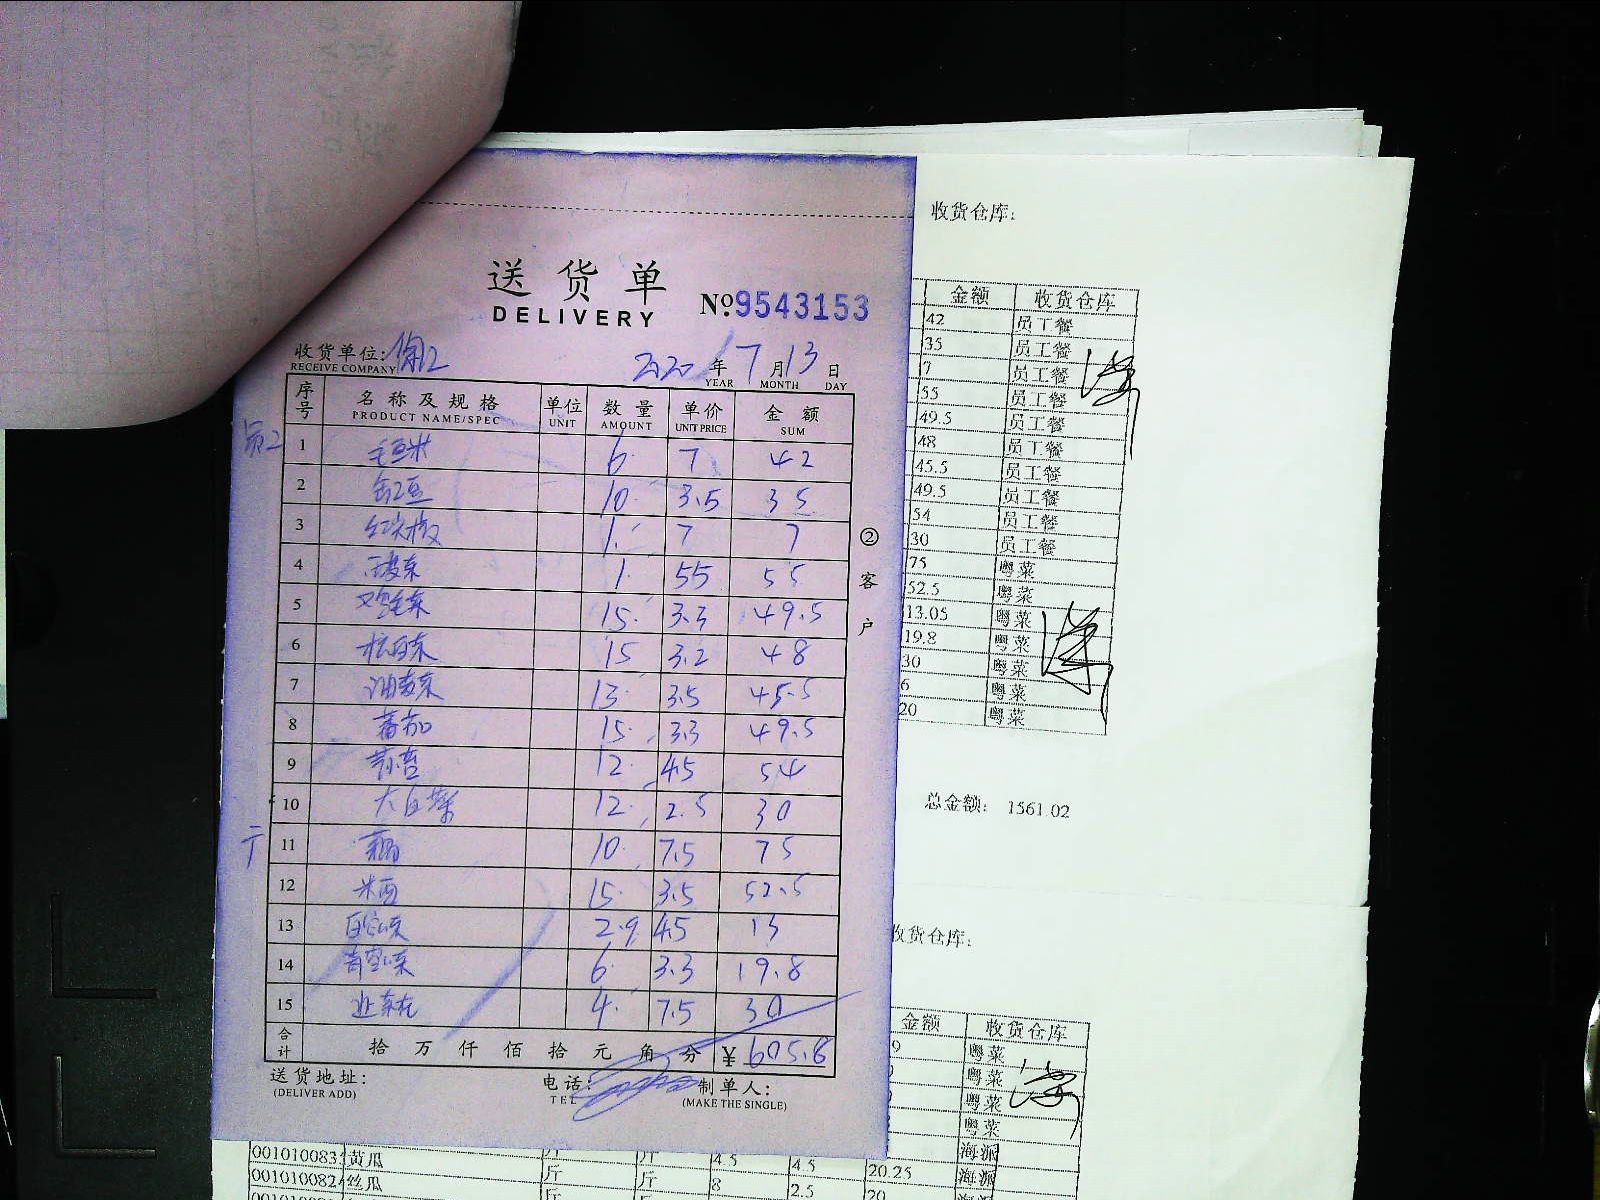 送货单
DELIVERY
№9543153
收货单位:
RECEIVE COMPANY
2020年7月13日
YEAR MONTH DAY
序号 名称及规格 单位 数量 单价 金额
PRODUCT NAME/SPEC UNIT AMOUNT UNIT PRICE SUM
1 毛豆米 6 7 42
2 缸豆 10 3.5 35
3 红尖椒 1 7 7
4 1 55 55
5 鸡毛菜 15 3.3 49.5
6 松白菜 15 3.2 48
7 油麦菜 13 3.5 45.5
8 番茄 15 3.3 49.5
9 12 4.5 54
10 大白菜 12 2.5 30
11 10 7.5 75
12 米西 15 3.5 52.5
13 2.9 4.5 13
14 6 3.3 19.8
15 4 7.5 30
合计 拾万仟佰拾元角分 ¥605.8
送货地址:
(DELIVER ADD)
电话:
TEL
制单人:
(MAKE THE SINGLE)
②客户
收货仓库:
金额 收货仓库
42 员工餐
35 员工餐
7 员工餐
55 员工餐
49.5 员工餐
48 员工餐
45.5 员工餐
49.5 员工餐
54 员工餐
30 员工餐
75 粤菜
52.5 粤菜
13.05 粤菜
19.8 粤菜
30 粤菜
6 粤菜
20 粤菜
总金额: 1561.02
收货仓库:
金额 收货仓库
9 粤菜
粤菜
粤菜
粤菜
黄瓜 斤 斤 4.5 4.5 20.25 海派
丝瓜 斤 斤 8 2.5 20 海派